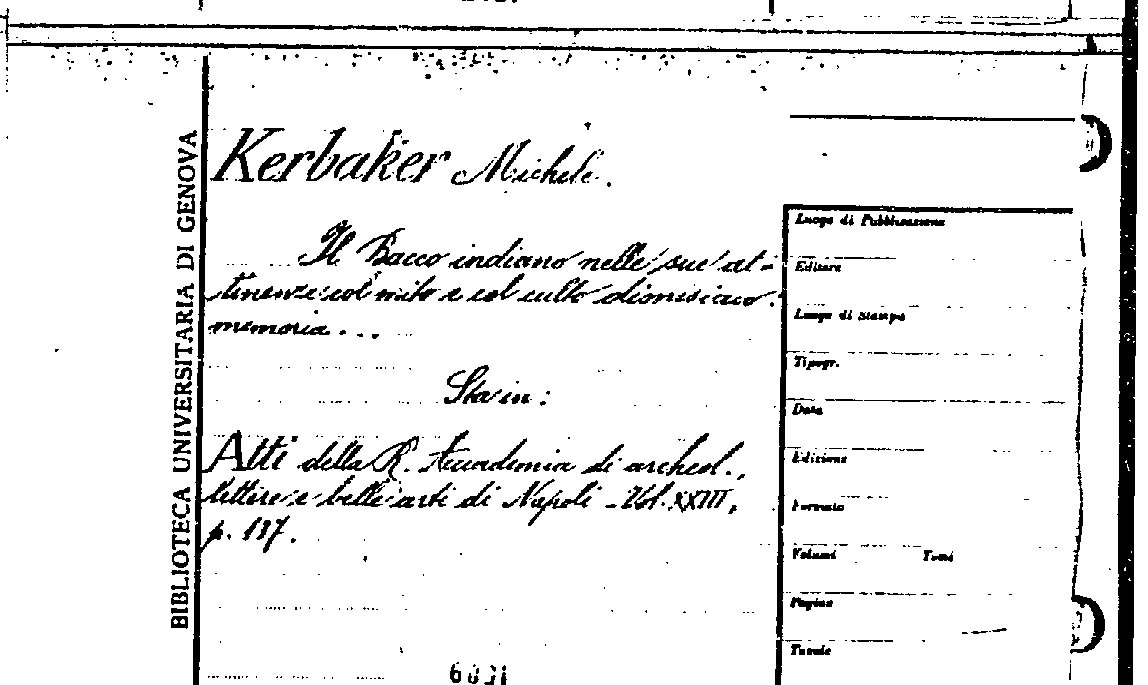 BIBLIOTECA UNIVERSITARIA DI GENOVA
Kerbaker Michele.
Il Bacco indiano nelle sue at-
tinenze col mito e col culto dionisiaco:
memoria...
Sta in:
Atti della R. Accademia di archeol.,
lettere e belle arti di Napoli - Vol. XXIII,
p. 137.
Luogo di Pubblicazione
Editore
Luogo di Stampa
Tipogr.
Data
Edizione
Formato
Volumi Tomi
Pagine
Tavole